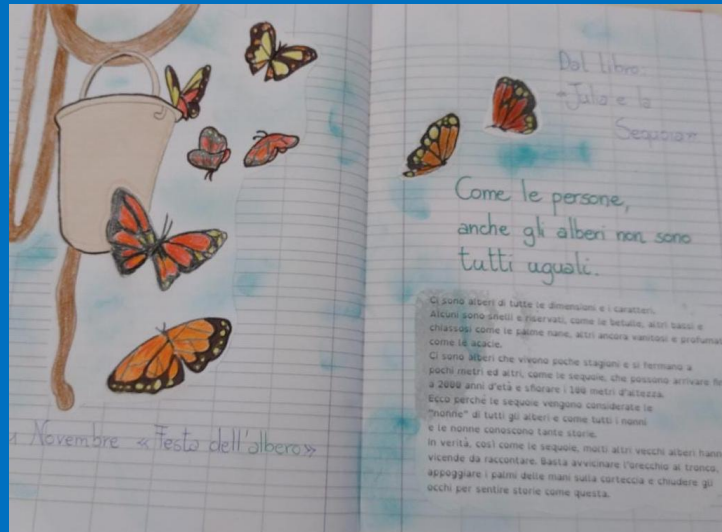 Novembre «Festa dell'albero»
Dal libro:
«Julia e la
Sequoia»
Come le persone,
anche gli alberi non sono
tutti uguali.
Ci sono alberi di tutte le dimensioni e i caratteri.
Alcuni sono snelli e riservati, come le betulle, altri bassi e
chiassosi come le palme nane, altri ancora vanitosi e profumat
come le acacie.
Ci sono alberi che vivono poche stagioni e si fermano a
pochi metri ed altri, come le sequoie, che possono arrivare fi
a 2000 anni d'età e sfiorare i 100 metri d'altezza.
Ecco perché le sequoie vengono considerate le
"nonne" di tutti gli alberi e come tutti i nonni
e le nonne conoscono tante storie.
In verità, così come le sequoie, molti altri vecchi alberi hann
vicende da raccontare. Basta avvicinare l'orecchio al tronco,
appoggiare i palmi delle mani sulla corteccia e chiudere gli
occhi per sentire storie come questa.